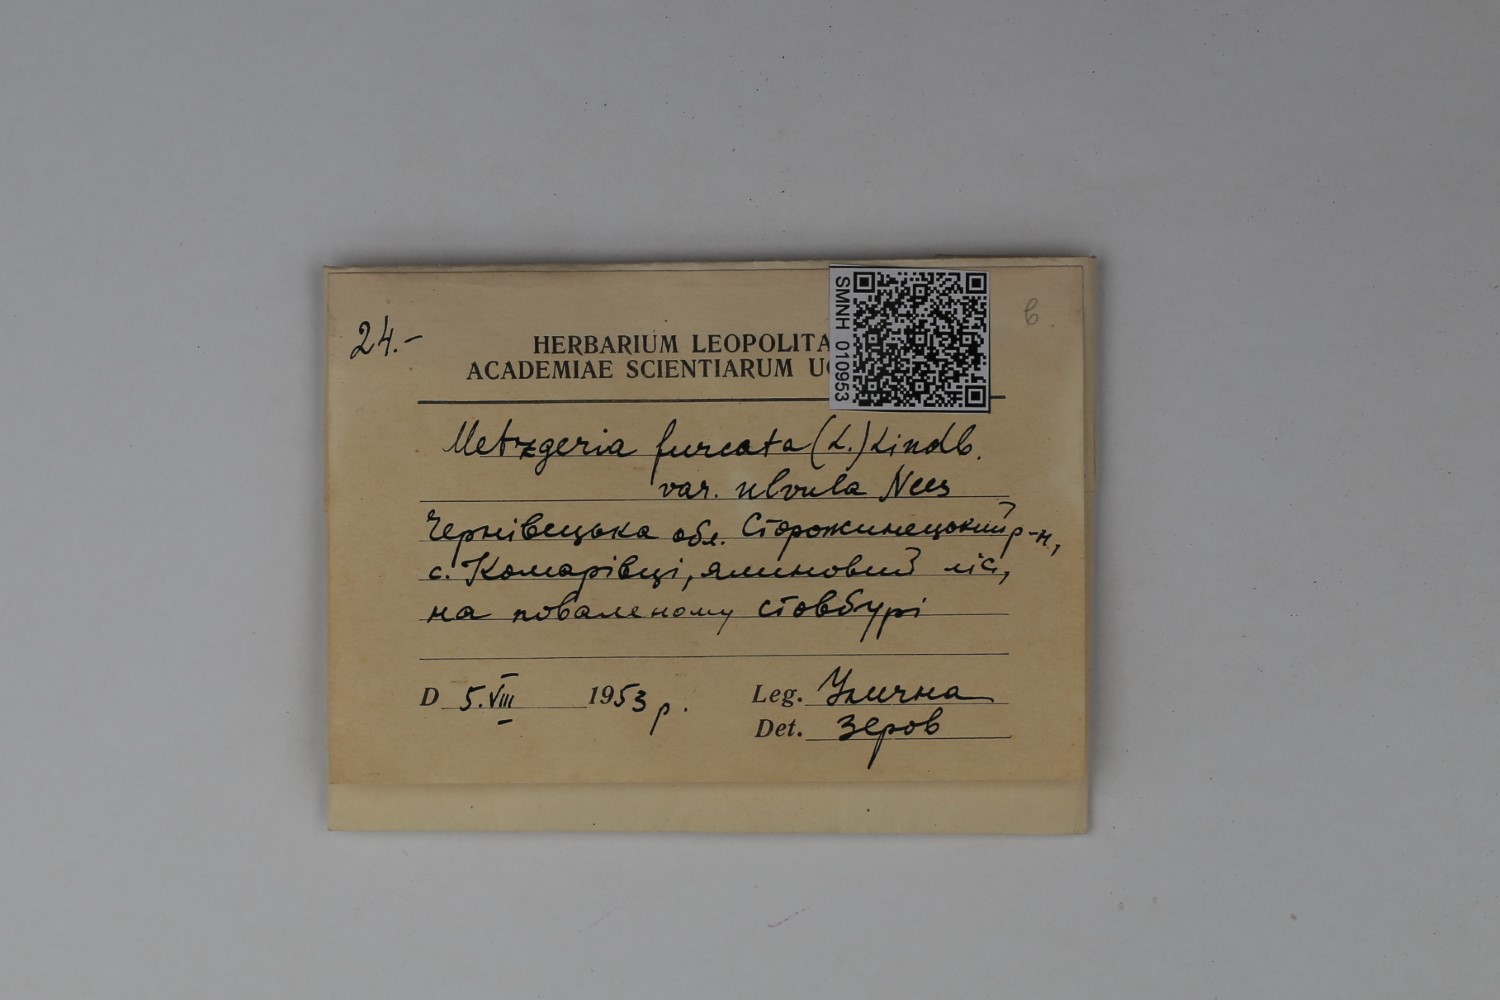 24.-
HERBARIUM LEOPOLITA
ACADEMIAE SCIENTIARUM
SMNH 010953
в.
Metzgeria furcata (L.) Lindb.
var. ulvula Nees
Чернівецька обл. Сторожинецький р-н,
с. Комарівці, ялиновий ліс,
на поваленому стовбурі
D 5.VIII 1953 р. Leg. Улична
Det. Зеров